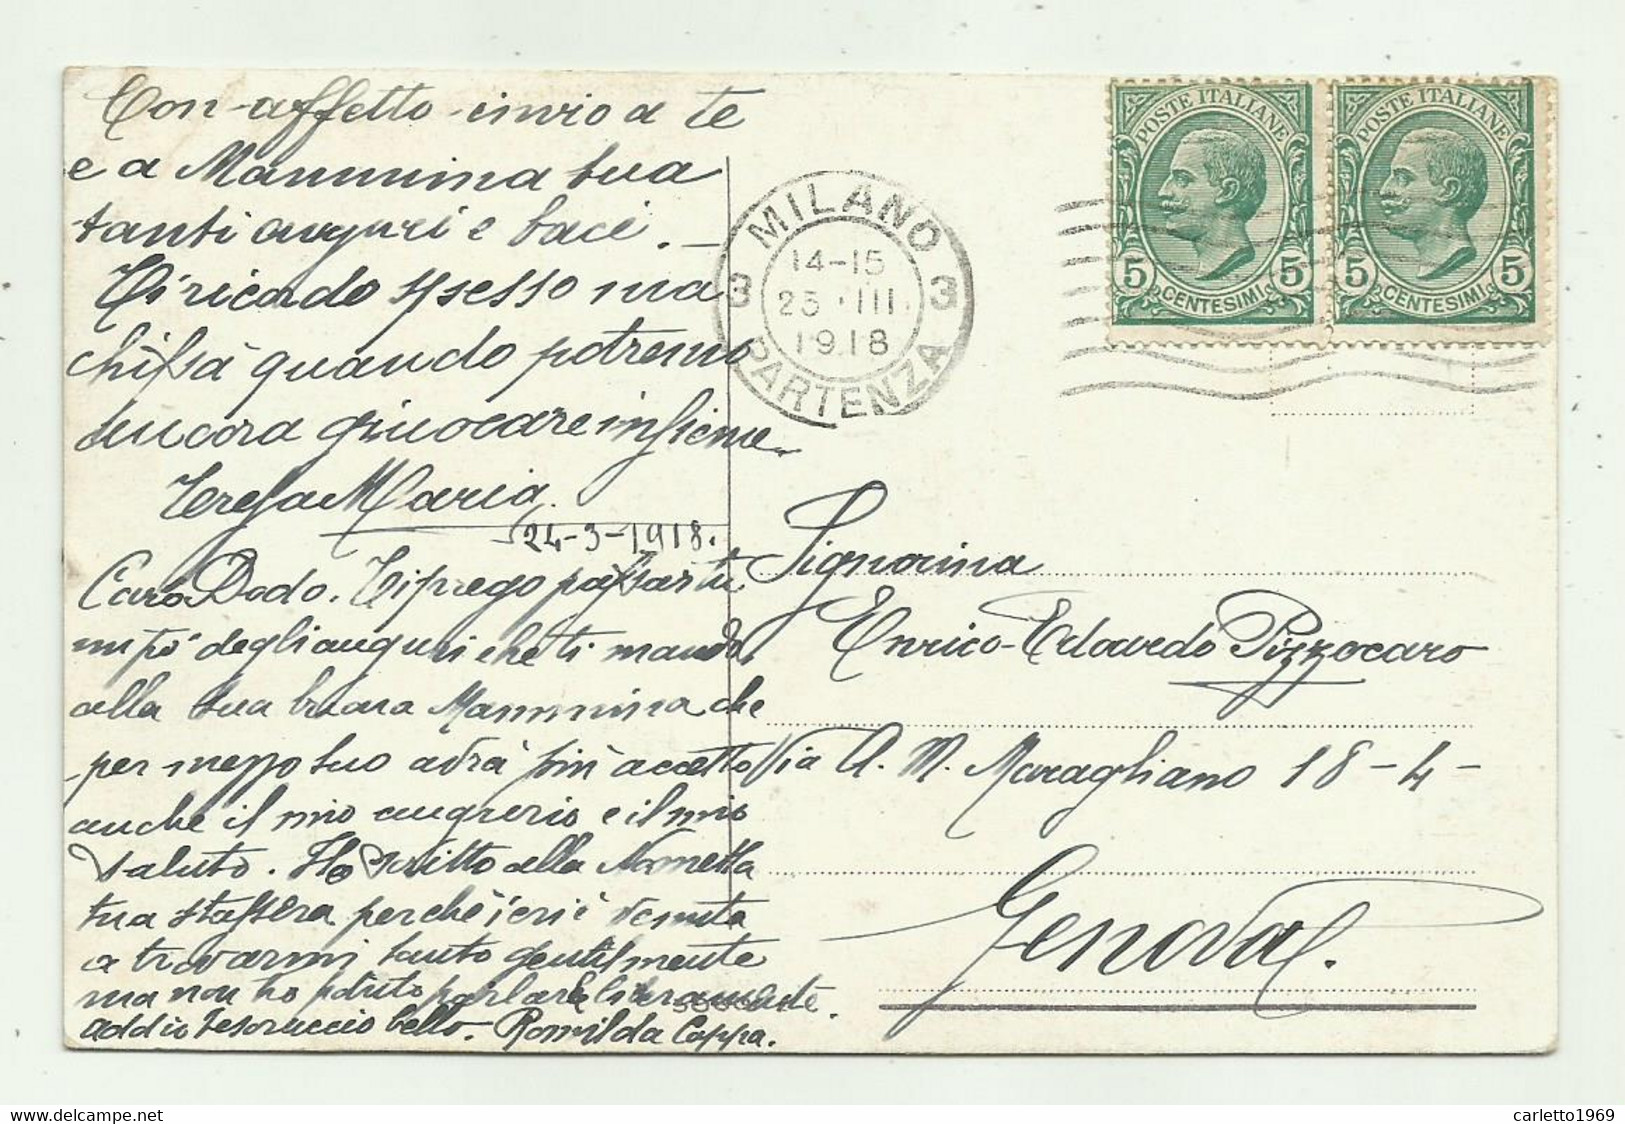 Con affetto invio a te
e a Mammina tua
tanti auguri e baci. —
Ti ricordo spesso ma
chissà quando potremo
ancora giuocare insieme.
Teresa Maria.
24-3-1918.
Caro Dodo. Ti prego passar tu
un pò degli auguri che ti mando,
alla tua buona Mammina che
per mezzo tuo avrà più accetto
anche il mio augurio e il mio
saluto. Ho scritto alla Nonnetta
tua stassera perchè ieri è venuta
a trovarmi tanto gentilmente
ma non ho potuto parlarle liberamente.
addio tesoruccio bello. Romilda Cappa.
MILANO
3 14-15 3
25 · III
1918
PARTENZA
POSTE ITALIANE
5 CENTESIMI 5
POSTE ITALIANE
5 CENTESIMI 5
Signorina
Enrico-Edoardo Pizzocaro
Via A. M. Maragliano 18-4-
Genova.
www.delcampe.net
carletto1969